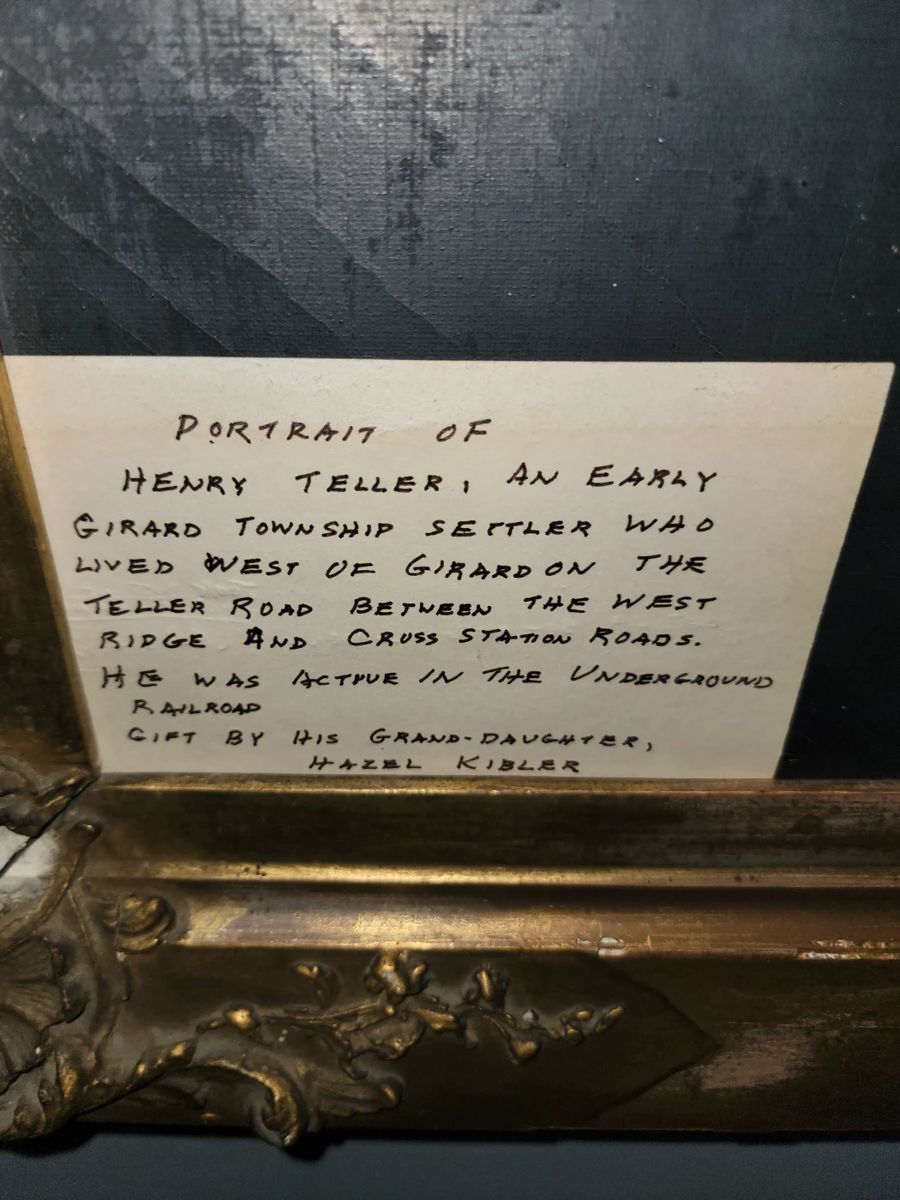 PORTRAIT OF
HENRY TELLER, AN EARLY
GIRARD TOWNSHIP SETTLER WHO
LIVED WEST OF GIRARD ON THE
TELLER ROAD BETWEEN THE WEST
RIDGE AND CROSS STATION ROADS.
HE WAS ACTIVE IN THE UNDERGROUND
RAILROAD
GIFT BY HIS GRAND-DAUGHTER,
HAZEL KIBLER